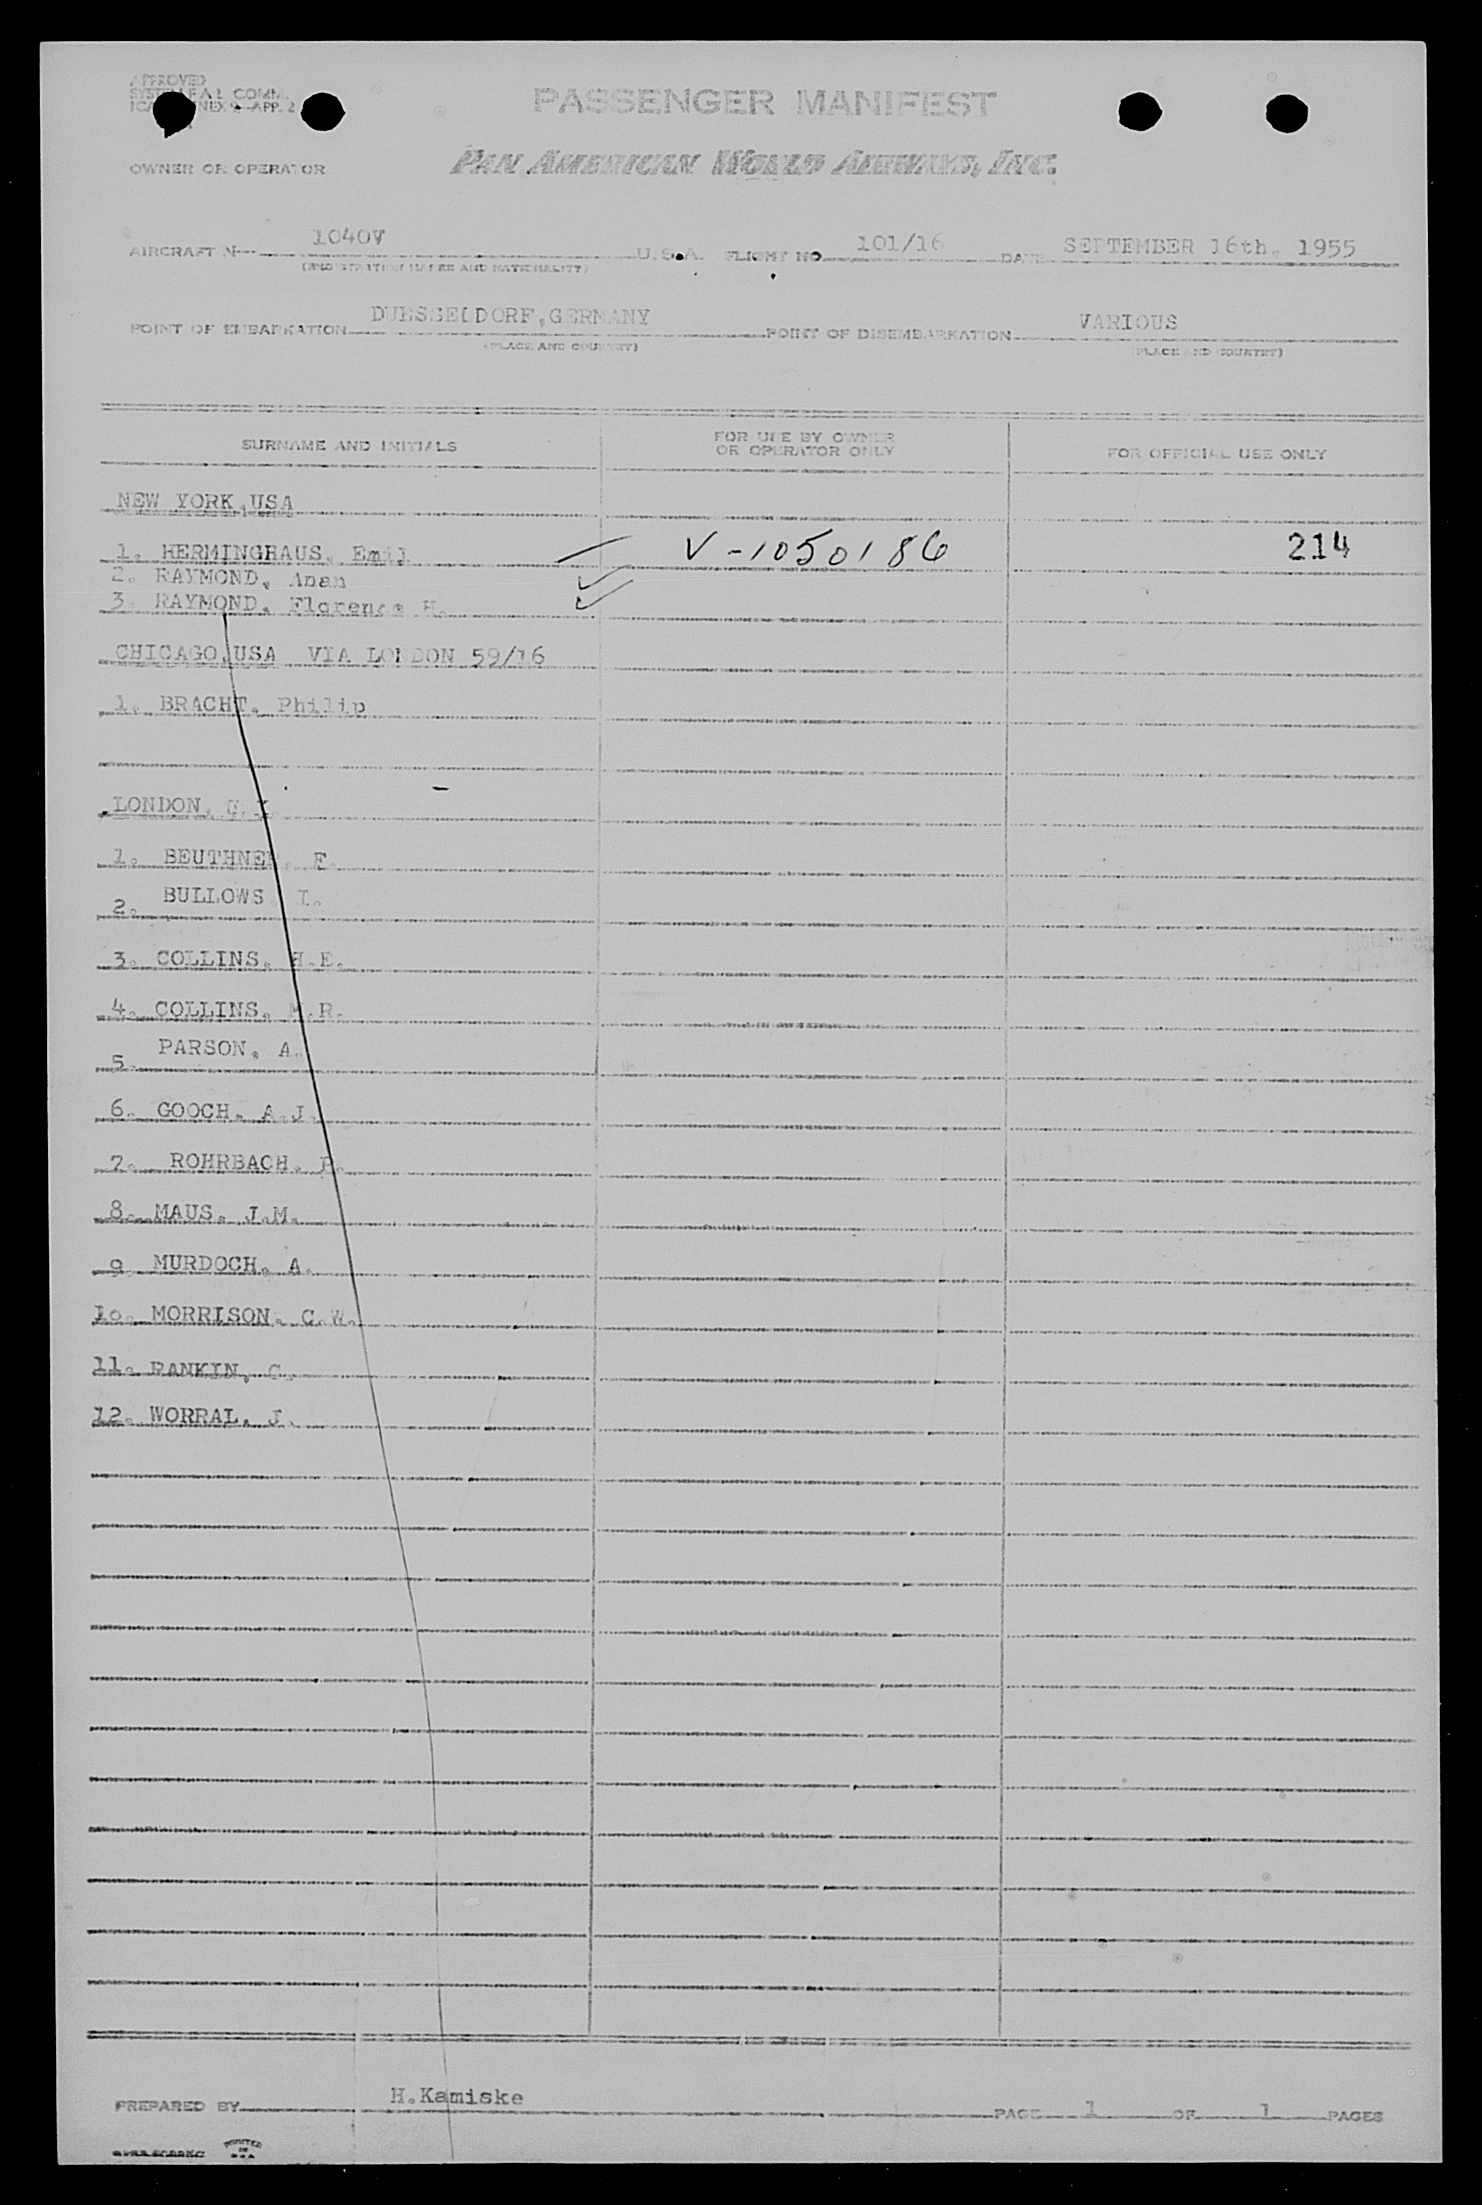 APPROVED
SYSTEM F A L COMM.
APP. 2
PASSENGER MANIFEST
OWNER OR OPERATOR
PAN AMERICAN WORLD AIRWAYS, INC.
AIRCRAFT N 1040V U.S.A. FLIGHT NO 101/16 DATE SEPTEMBER 16th. 1955
(REGISTRATION MARKS AND NATIONALITY)
POINT OF EMBARKATION DUESSELDORF,GERMANY POINT OF DISEMBARKATION VARIOUS
(PLACE AND COUNTRY) (PLACE AND COUNTRY)
SURNAME AND INITIALS FOR USE BY OWNER OR OPERATOR ONLY FOR OFFICIAL USE ONLY
NEW YORK,USA
1. HERMINGHAUS, Emil V-1050186 214
2. RAYMOND, Anan
3. RAYMOND. Florence H.
CHICAGO,USA VIA LONDON 59/16
1. BRACHT. Philip
LONDON,
1. BEUTHNER. F.
2. BULLOWS I.
3. COLLINS. H.E.
4. COLLINS. M.R.
5. PARSON. A.
6. GOOCH. A.J.
7. ROHRBACH. P.
8. MAUS. J.M.
9. MURDOCH. A.
10. MORRISON. C.W.
11. RANKIN, C.
12. WORRAL. J.
PREPARED BY H.Kamiske PAGE 1 OF 1 PAGES
PRINTED IN U.S.A.